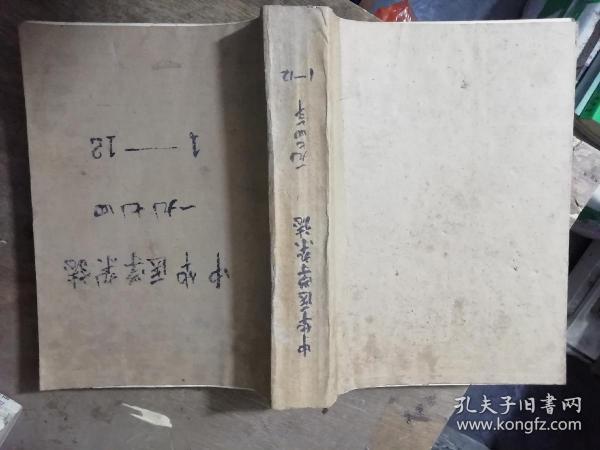 中华医学杂誌
一九七四
1—12
中华医学杂誌
一九七四年
1—12
孔夫子旧书网
www.kongfz.com